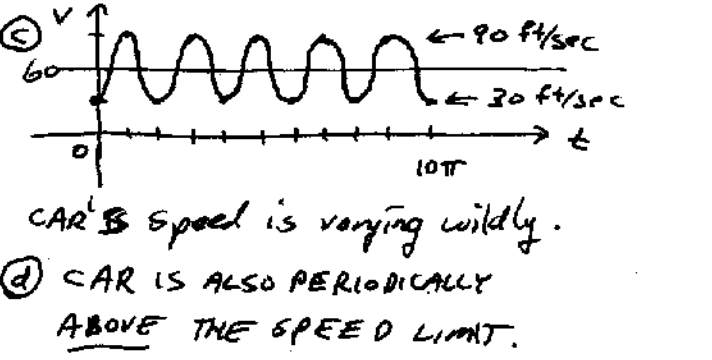 ⓒ V
← 90 ft/sec
60
← 30 ft/sec
0
t
10π
CAR'S Speed is varying wildly.
ⓓ CAR IS ALSO PERIODICALLY
ABOVE THE SPEED LIMIT.